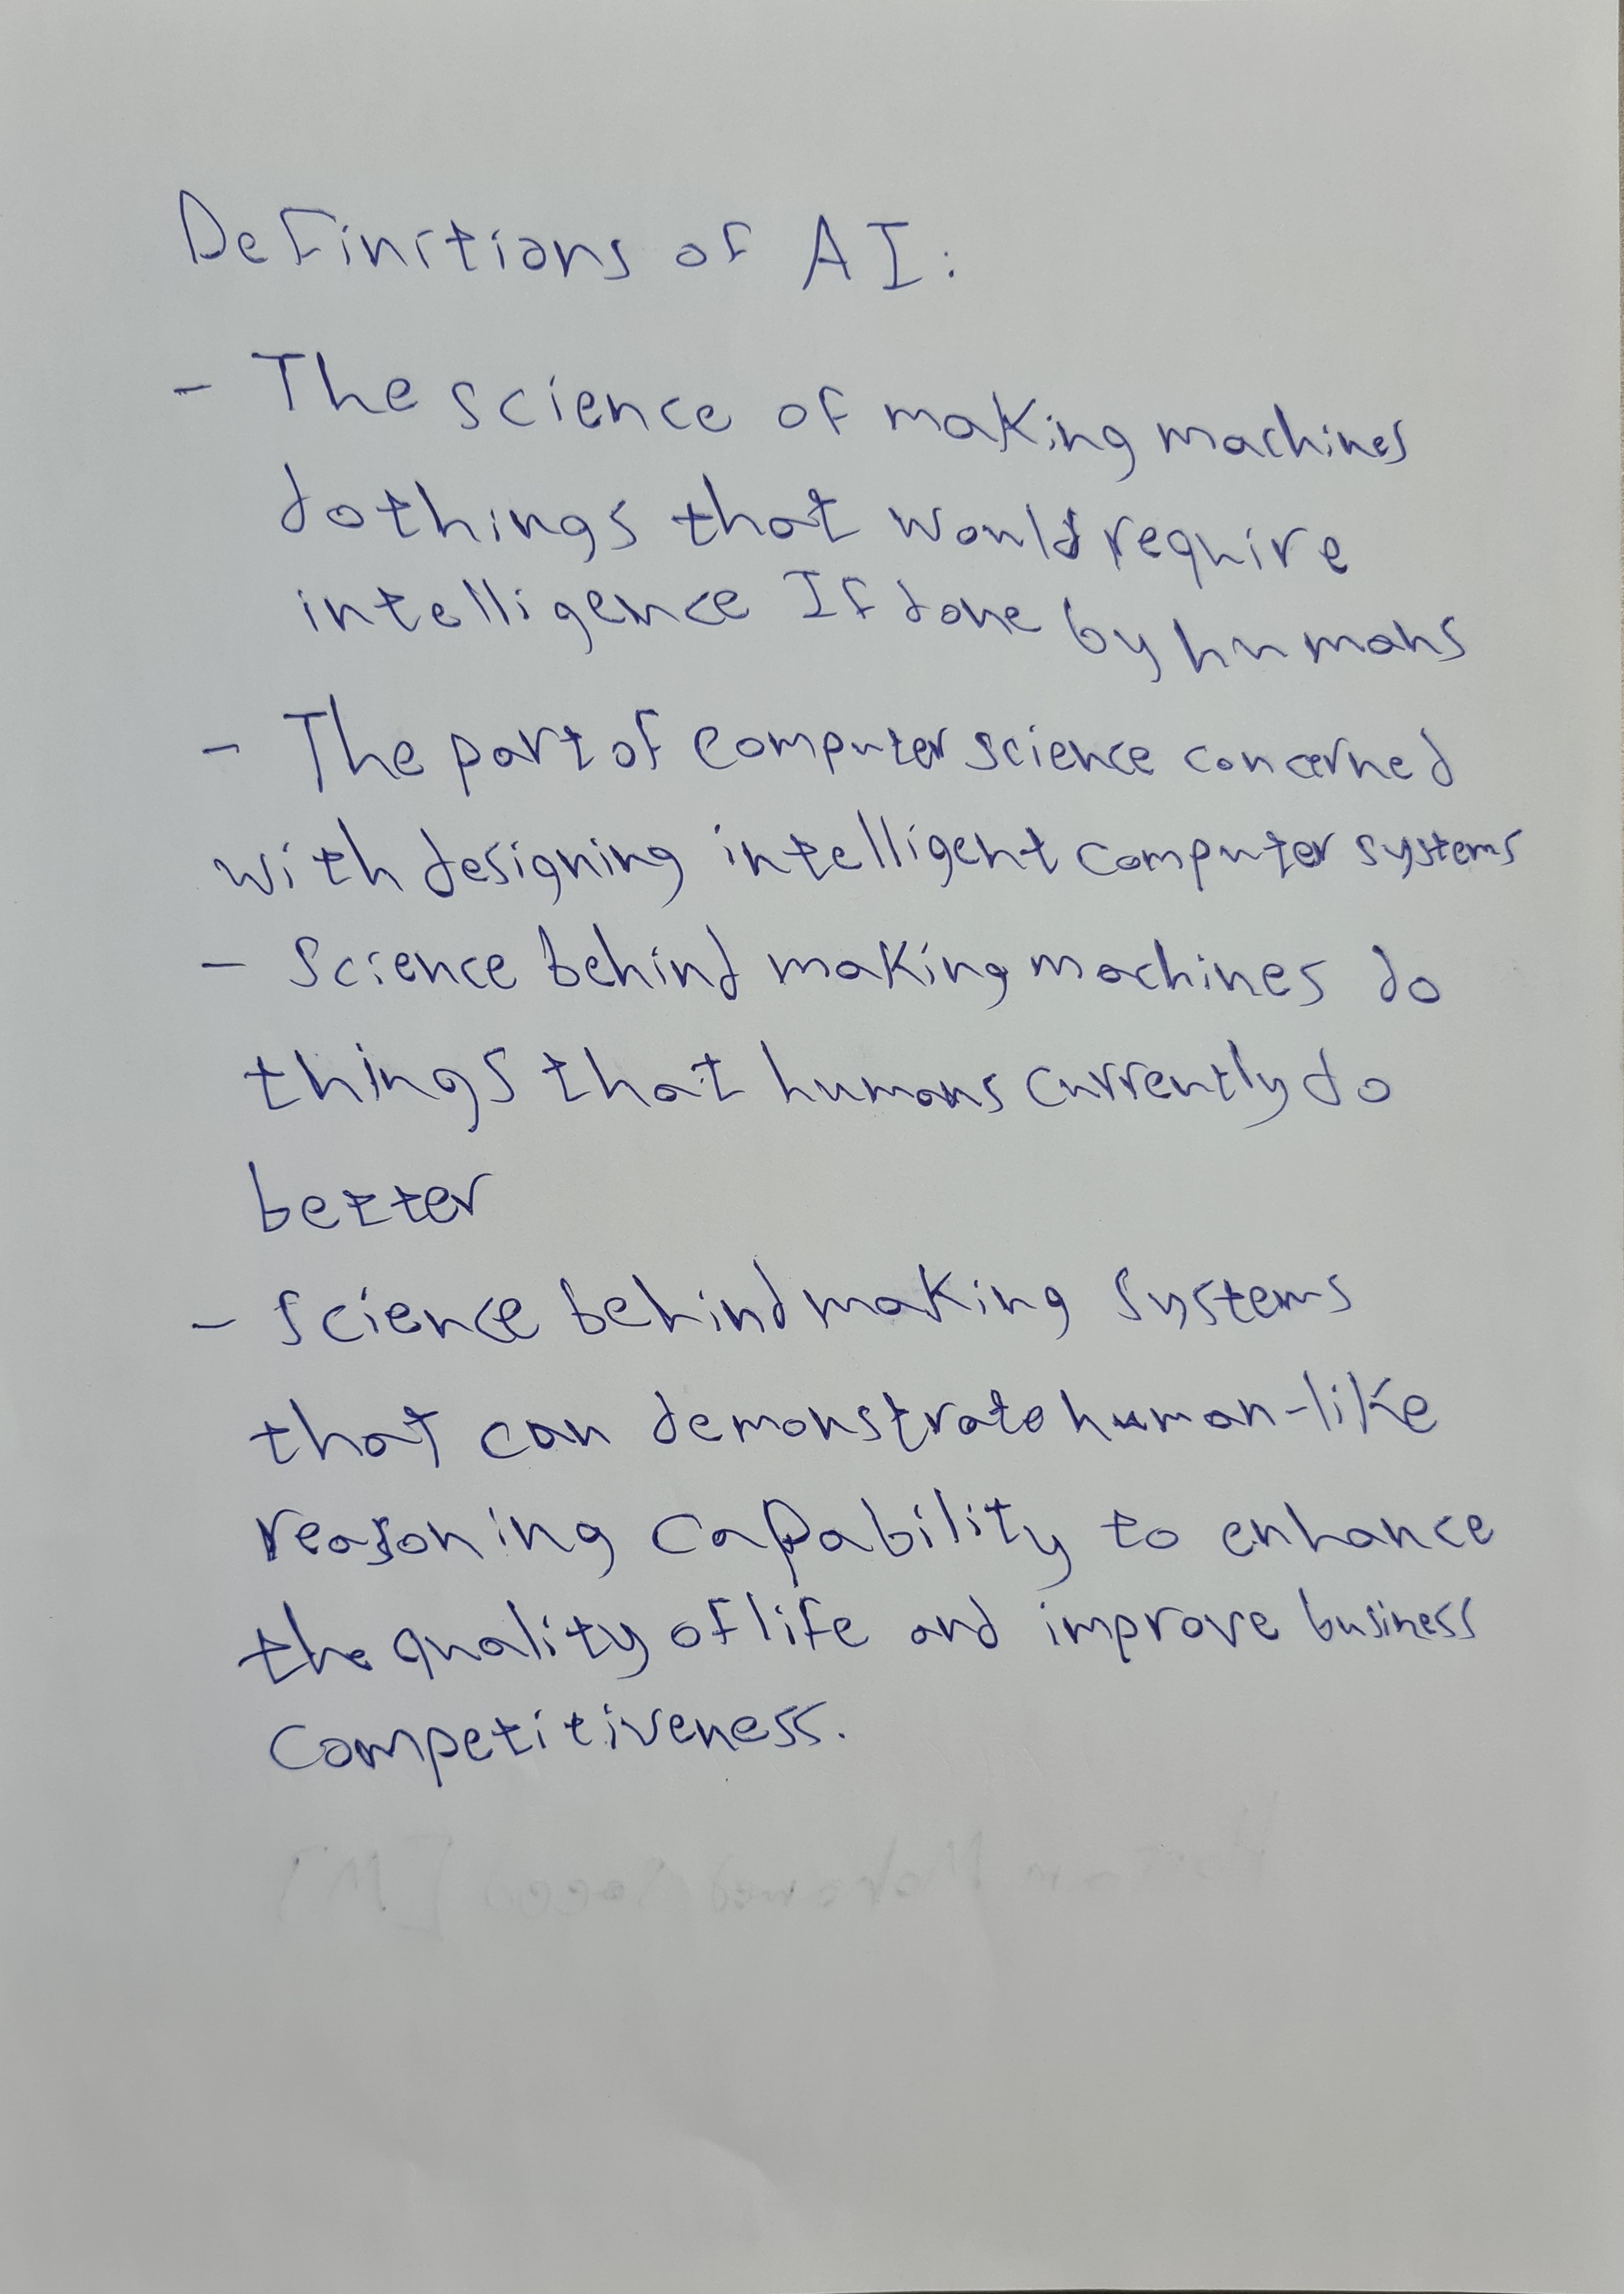 Definitions of AI:
- The science of making machines
do things that would require
intelligence If done by humans
- The part of computer science concerned
with designing intelligent computer systems
- Science behind making machines do
things that humans currently do
better
- Science behind making systems
that can demonstrate human-like
reasoning capability to enhance
the quality of life and improve business
competitiveness.